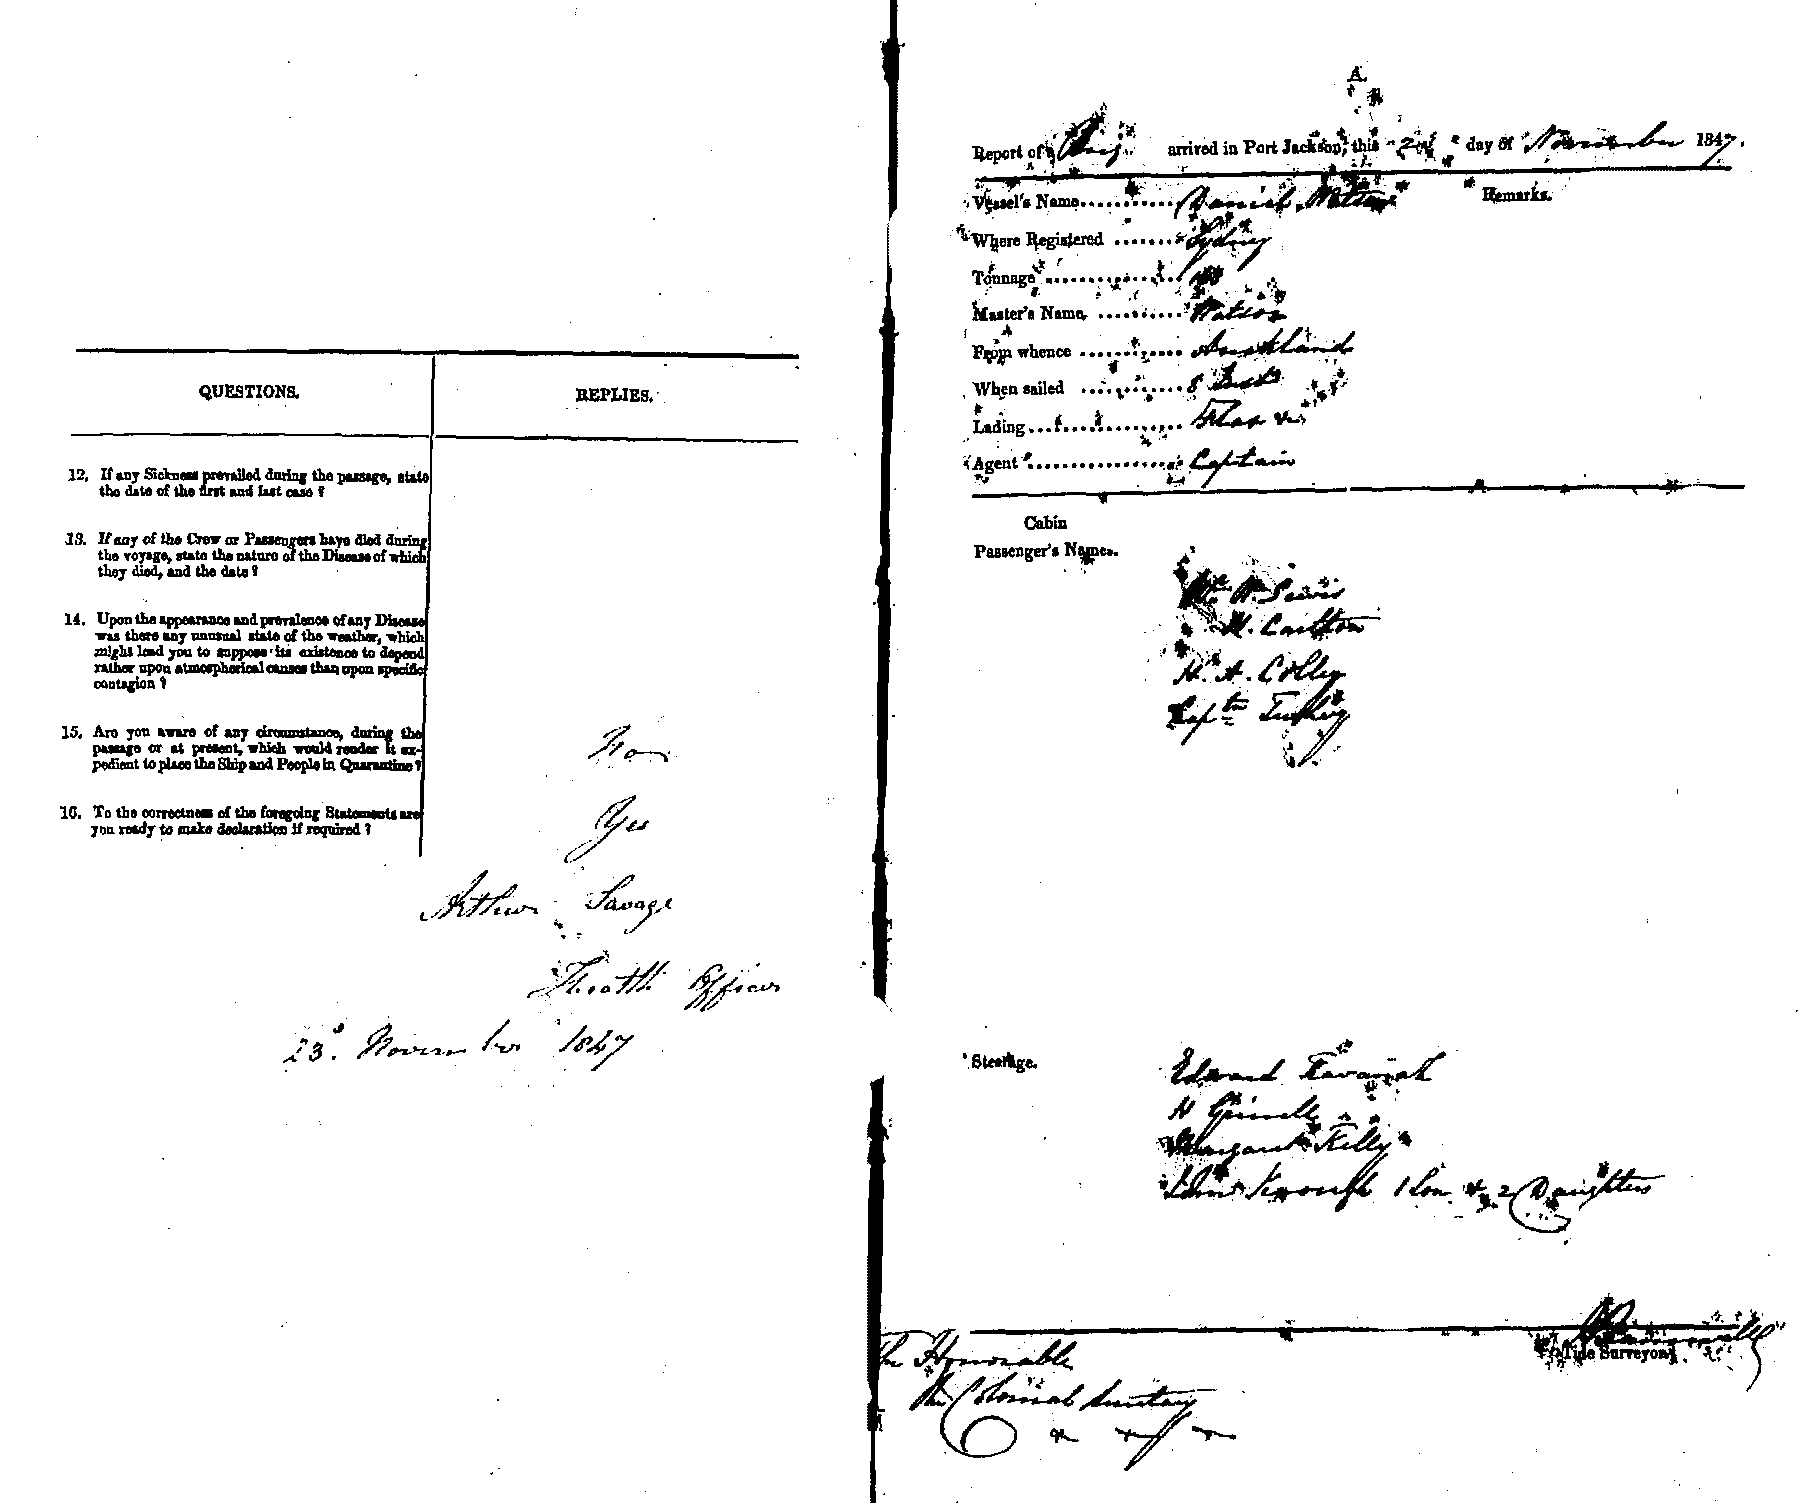 QUESTIONS.
REPLIES.
12. If any Sickness prevailed during the passage, state
the date of the first and last case ?
13. If any of the Crew or Passengers have died during
the voyage, state the nature of the Disease of which
they died, and the date ?
14. Upon the appearance and prevalence of any Disease
was there any unusual state of the weather, which
might lead you to suppose its existence to depend
rather upon atmospherical causes than upon specific
contagion ?
15. Are you aware of any circumstance, during the
passage or at present, which would render it ex-
pedient to place the Ship and People in Quarantine ?
16. To the correctness of the foregoing Statements are
you ready to make declaration if required ?
Yes
Arthur Savage
Health Officer
23d. November 1847
A.
Report of Brig arrived in Port Jackson, this day of November 1847.
Vessel's Name.......... Daniel Watson
Remarks.
Where Registered ....... Sydney
Tonnage ..............
Master's Name, .......... Watson
From whence ............ Auckland
When sailed ........... 8 Inst
Lading................ Flax &c
Agent ................ Captain
Cabin
Passenger's Names.
W. Lewis
Carlton
H. A. Colley
Captn
Steerage.
Edward Kavanah
H Grinell
Margaret Kelly
Keough 1 Son & 2 Daughters
Tide Surveyor.
The Honorable
The Colonial Secretary
&c &c &c